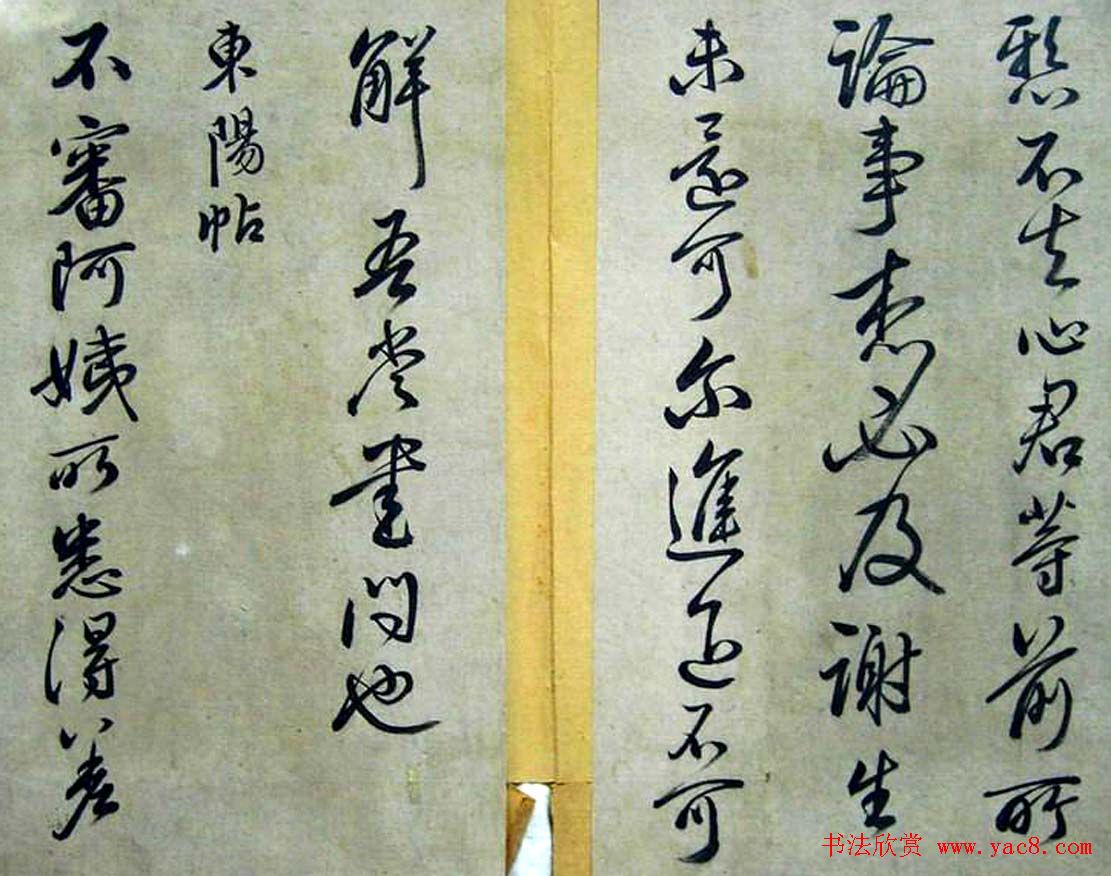 不失心君等前所
論事必及謝生
未還可尔進退不可
解吾當書問也
東陽帖
不審阿姨所患得差
书法欣赏 www.yac8.com